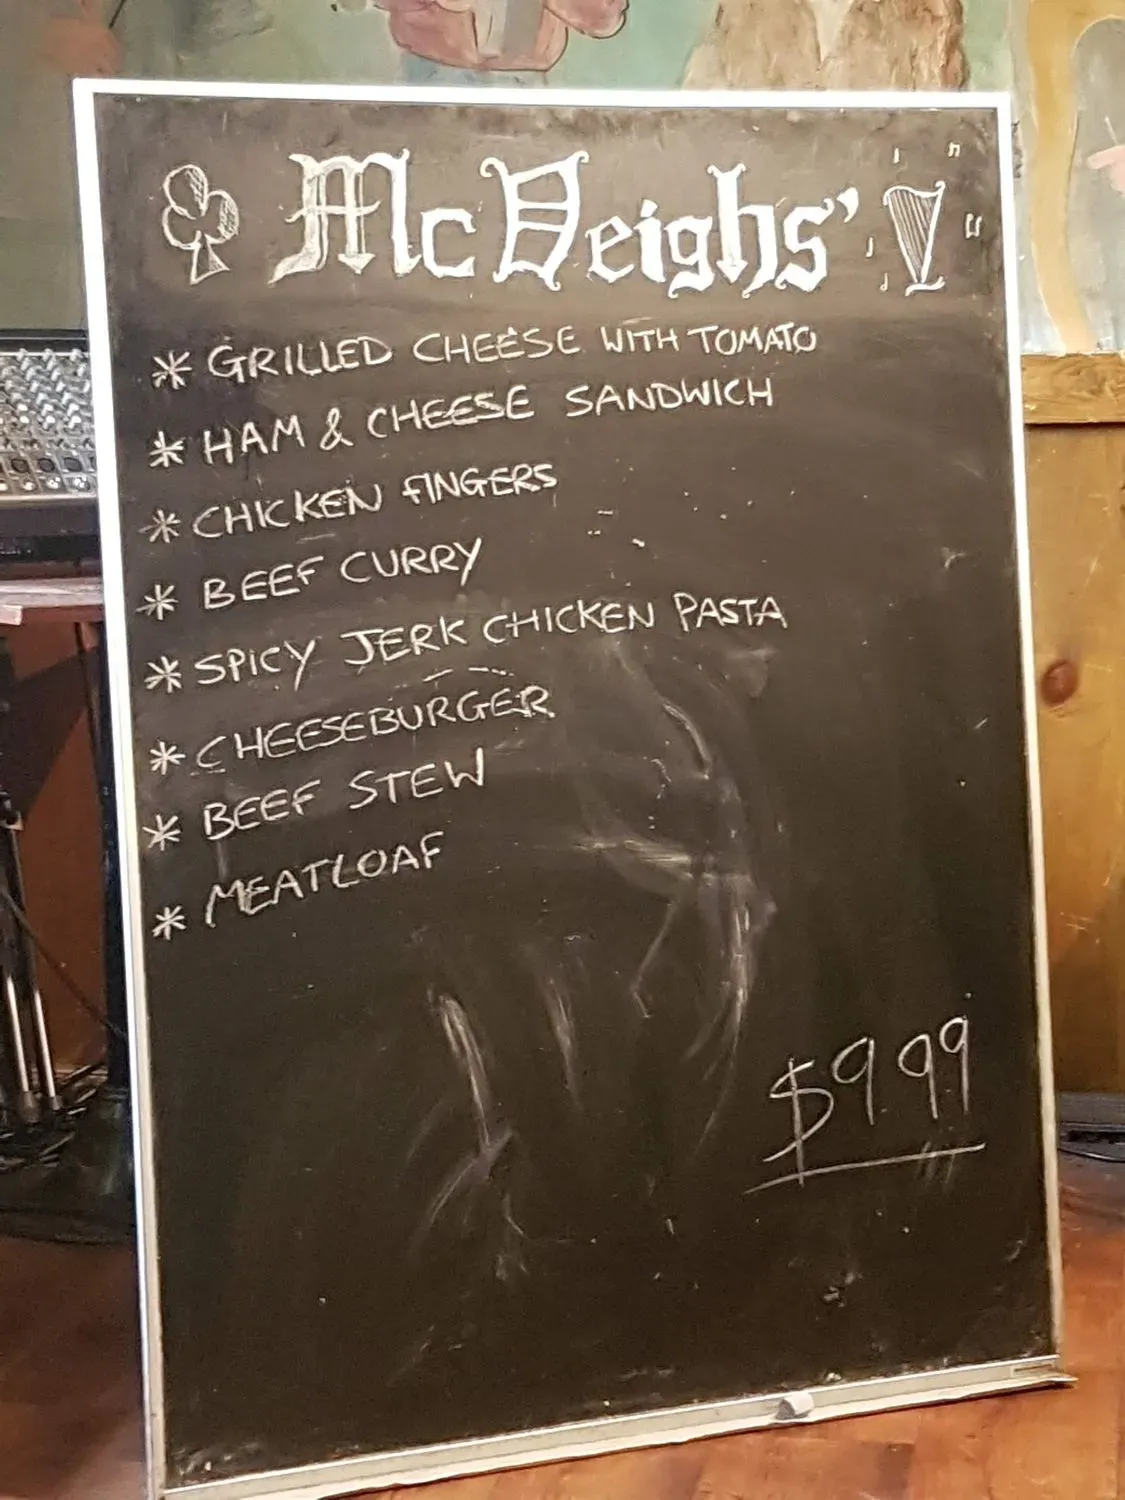 McVeighs'
* GRILLED CHEESE WITH TOMATO
* HAM & CHEESE SANDWICH
* CHICKEN FINGERS
* BEEF CURRY
* SPICY JERK CHICKEN PASTA
* CHEESEBURGER
* BEEF STEW
* MEATLOAF
$9.99